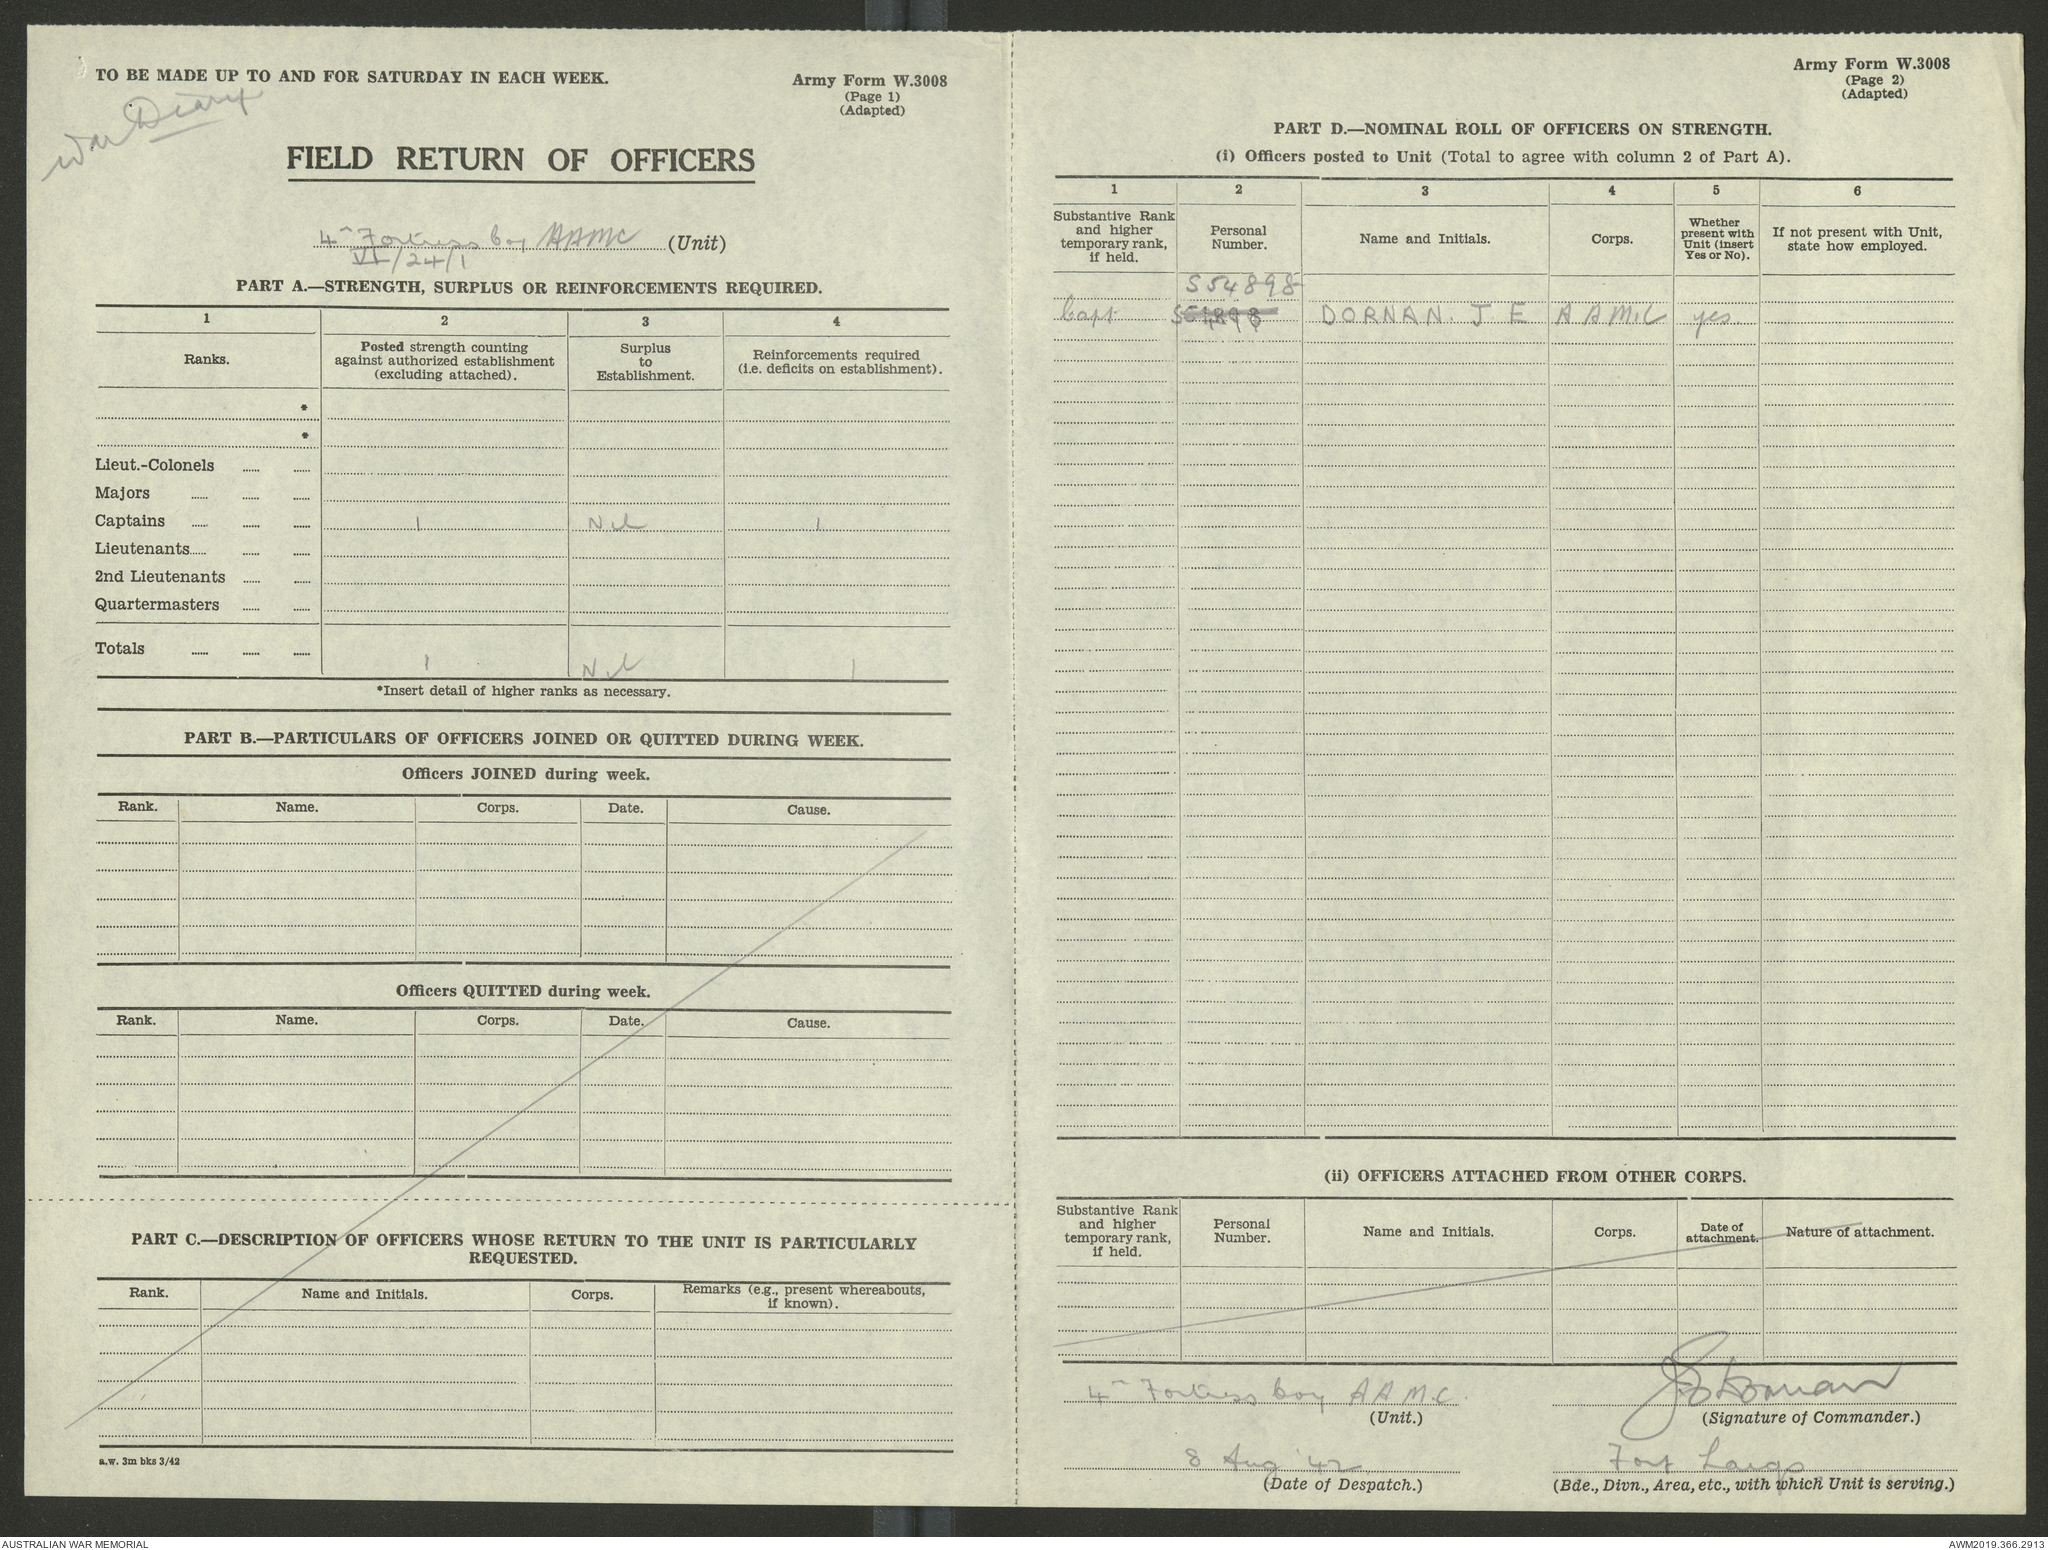 TO BE MADE UP TO AND FOR SATURDAY IN EACH WEEK.
Army Form W.3008
(Page 1)
(Adapted)
War Diary
FIELD RETURN OF OFFICERS
4th Fortress Coy AAMC (Unit)
VI/24/1
PART A.—STRENGTH, SURPLUS OR REINFORCEMENTS REQUIRED.
1 2 3 4
Ranks. Posted strength counting against authorized establishment (excluding attached). Surplus to Establishment. Reinforcements required (i.e. deficits on establishment).
*
*
Lieut.-Colonels
Majors
Captains 1 Nil 1
Lieutenants
2nd Lieutenants
Quartermasters
Totals 1 Nil 1
*Insert detail of higher ranks as necessary.
PART B.—PARTICULARS OF OFFICERS JOINED OR QUITTED DURING WEEK.
Officers JOINED during week.
Rank. Name. Corps. Date. Cause.
Officers QUITTED during week.
Rank. Name. Corps. Date. Cause.
PART C.—DESCRIPTION OF OFFICERS WHOSE RETURN TO THE UNIT IS PARTICULARLY
REQUESTED.
Rank. Name and Initials. Corps. Remarks (e.g., present whereabouts, if known).
a.w. 3m bks 3/42
Army Form W.3008
(Page 2)
(Adapted)
PART D.—NOMINAL ROLL OF OFFICERS ON STRENGTH.
(i) Officers posted to Unit (Total to agree with column 2 of Part A).
1 2 3 4 5 6
Substantive Rank and higher temporary rank, if held. Personal Number. Name and Initials. Corps. Whether present with Unit (insert Yes or No). If not present with Unit, state how employed.
S54898
Capt DORNAN. J E A A M.C yes
(ii) OFFICERS ATTACHED FROM OTHER CORPS.
Substantive Rank and higher temporary rank, if held. Personal Number. Name and Initials. Corps. Date of attachment. Nature of attachment.
4th Fortress Coy A A M.C.
(Unit.)
JEDornan
(Signature of Commander.)
8 Aug '42
(Date of Despatch.)
Fort Largs
(Bde., Divn., Area, etc., with which Unit is serving.)
AUSTRALIAN WAR MEMORIAL
AWM2019.366.2913